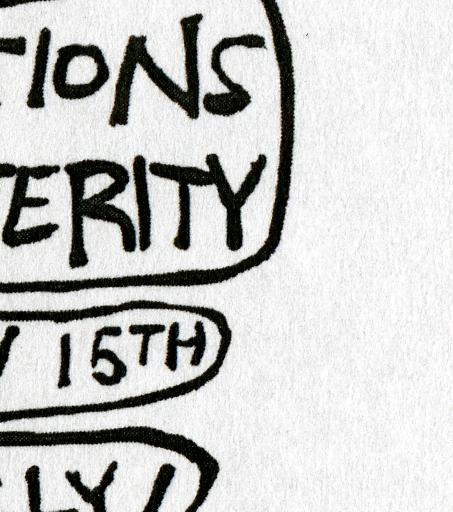 TIONS
TERITY
Y 15TH
ELY!